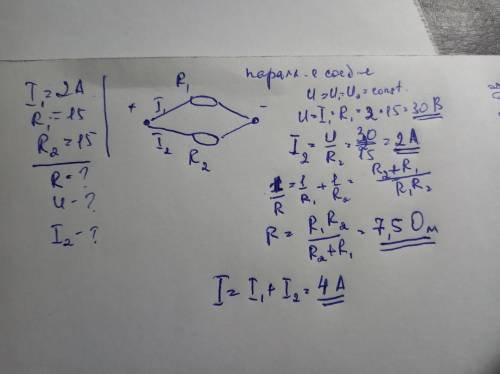 I₁=2A
R₁=15
R₂=15
R=?
U-?
I₂-?
R₁
+ I₁ -
I₂
R₂
паралл-е соед-е
U=U₁=U₂=const.
U=I₁·R₁=2·15=30В
I₂=U/R₂=30/15=2А
1/R=1/R₁+1/R₂=(R₂+R₁)/(R₁R₂)
R=R₁R₂/(R₂+R₁)=7,5 Ом
I=I₁+I₂=4А